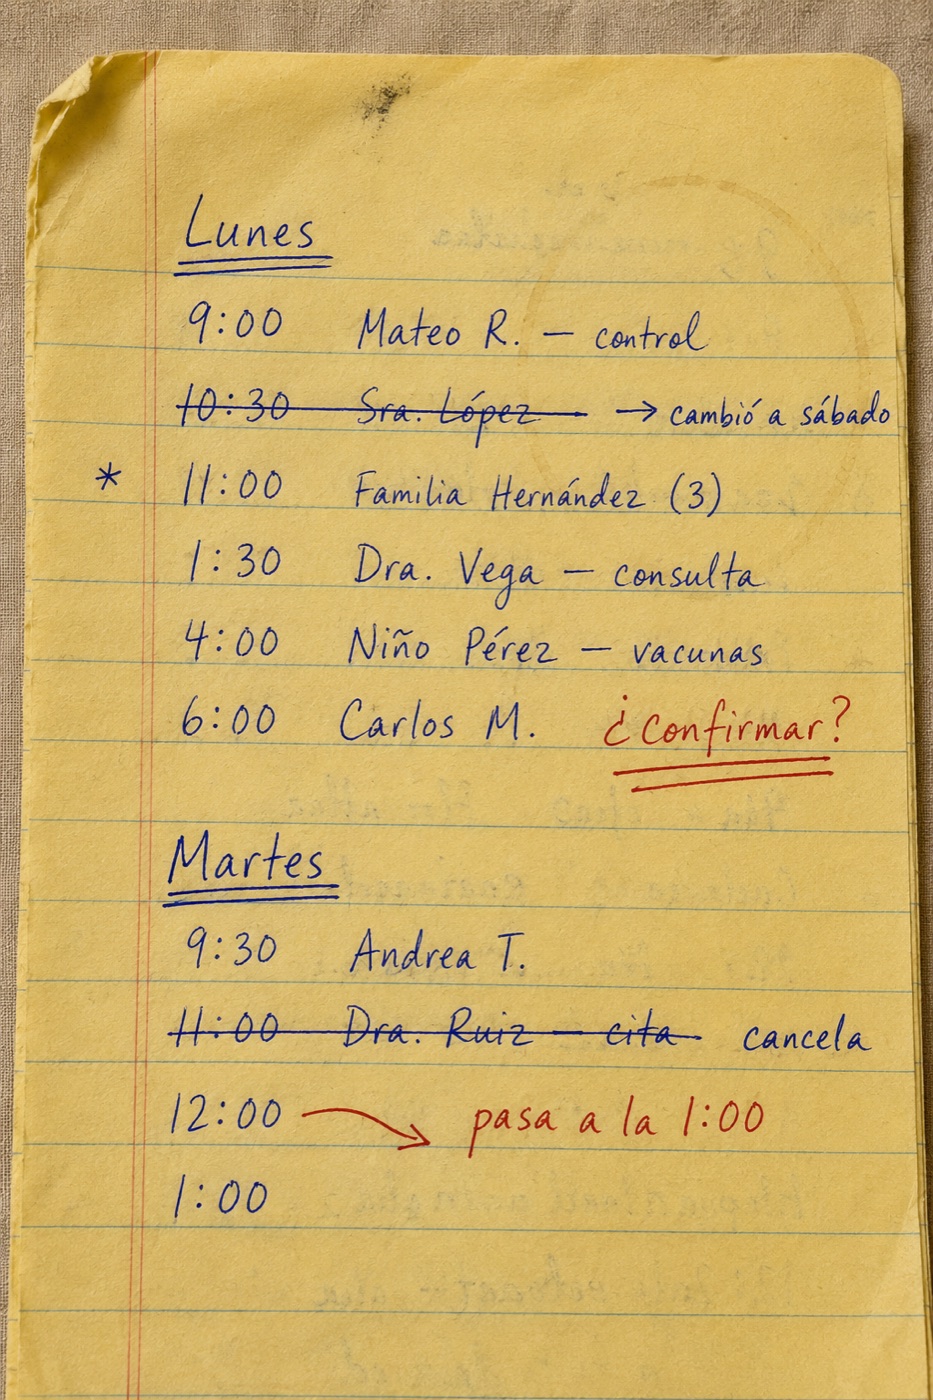 Lunes
9:00 Mateo R. — control
10:30 Sra. López → cambió a sábado
* 11:00 Familia Hernández (3)
1:30 Dra. Vega — consulta
4:00 Niño Pérez — vacunas
6:00 Carlos M. ¿confirmar?
Martes
9:30 Andrea T.
11:00 Dra. Ruiz — cita cancela
12:00 → pasa a la 1:00
1:00